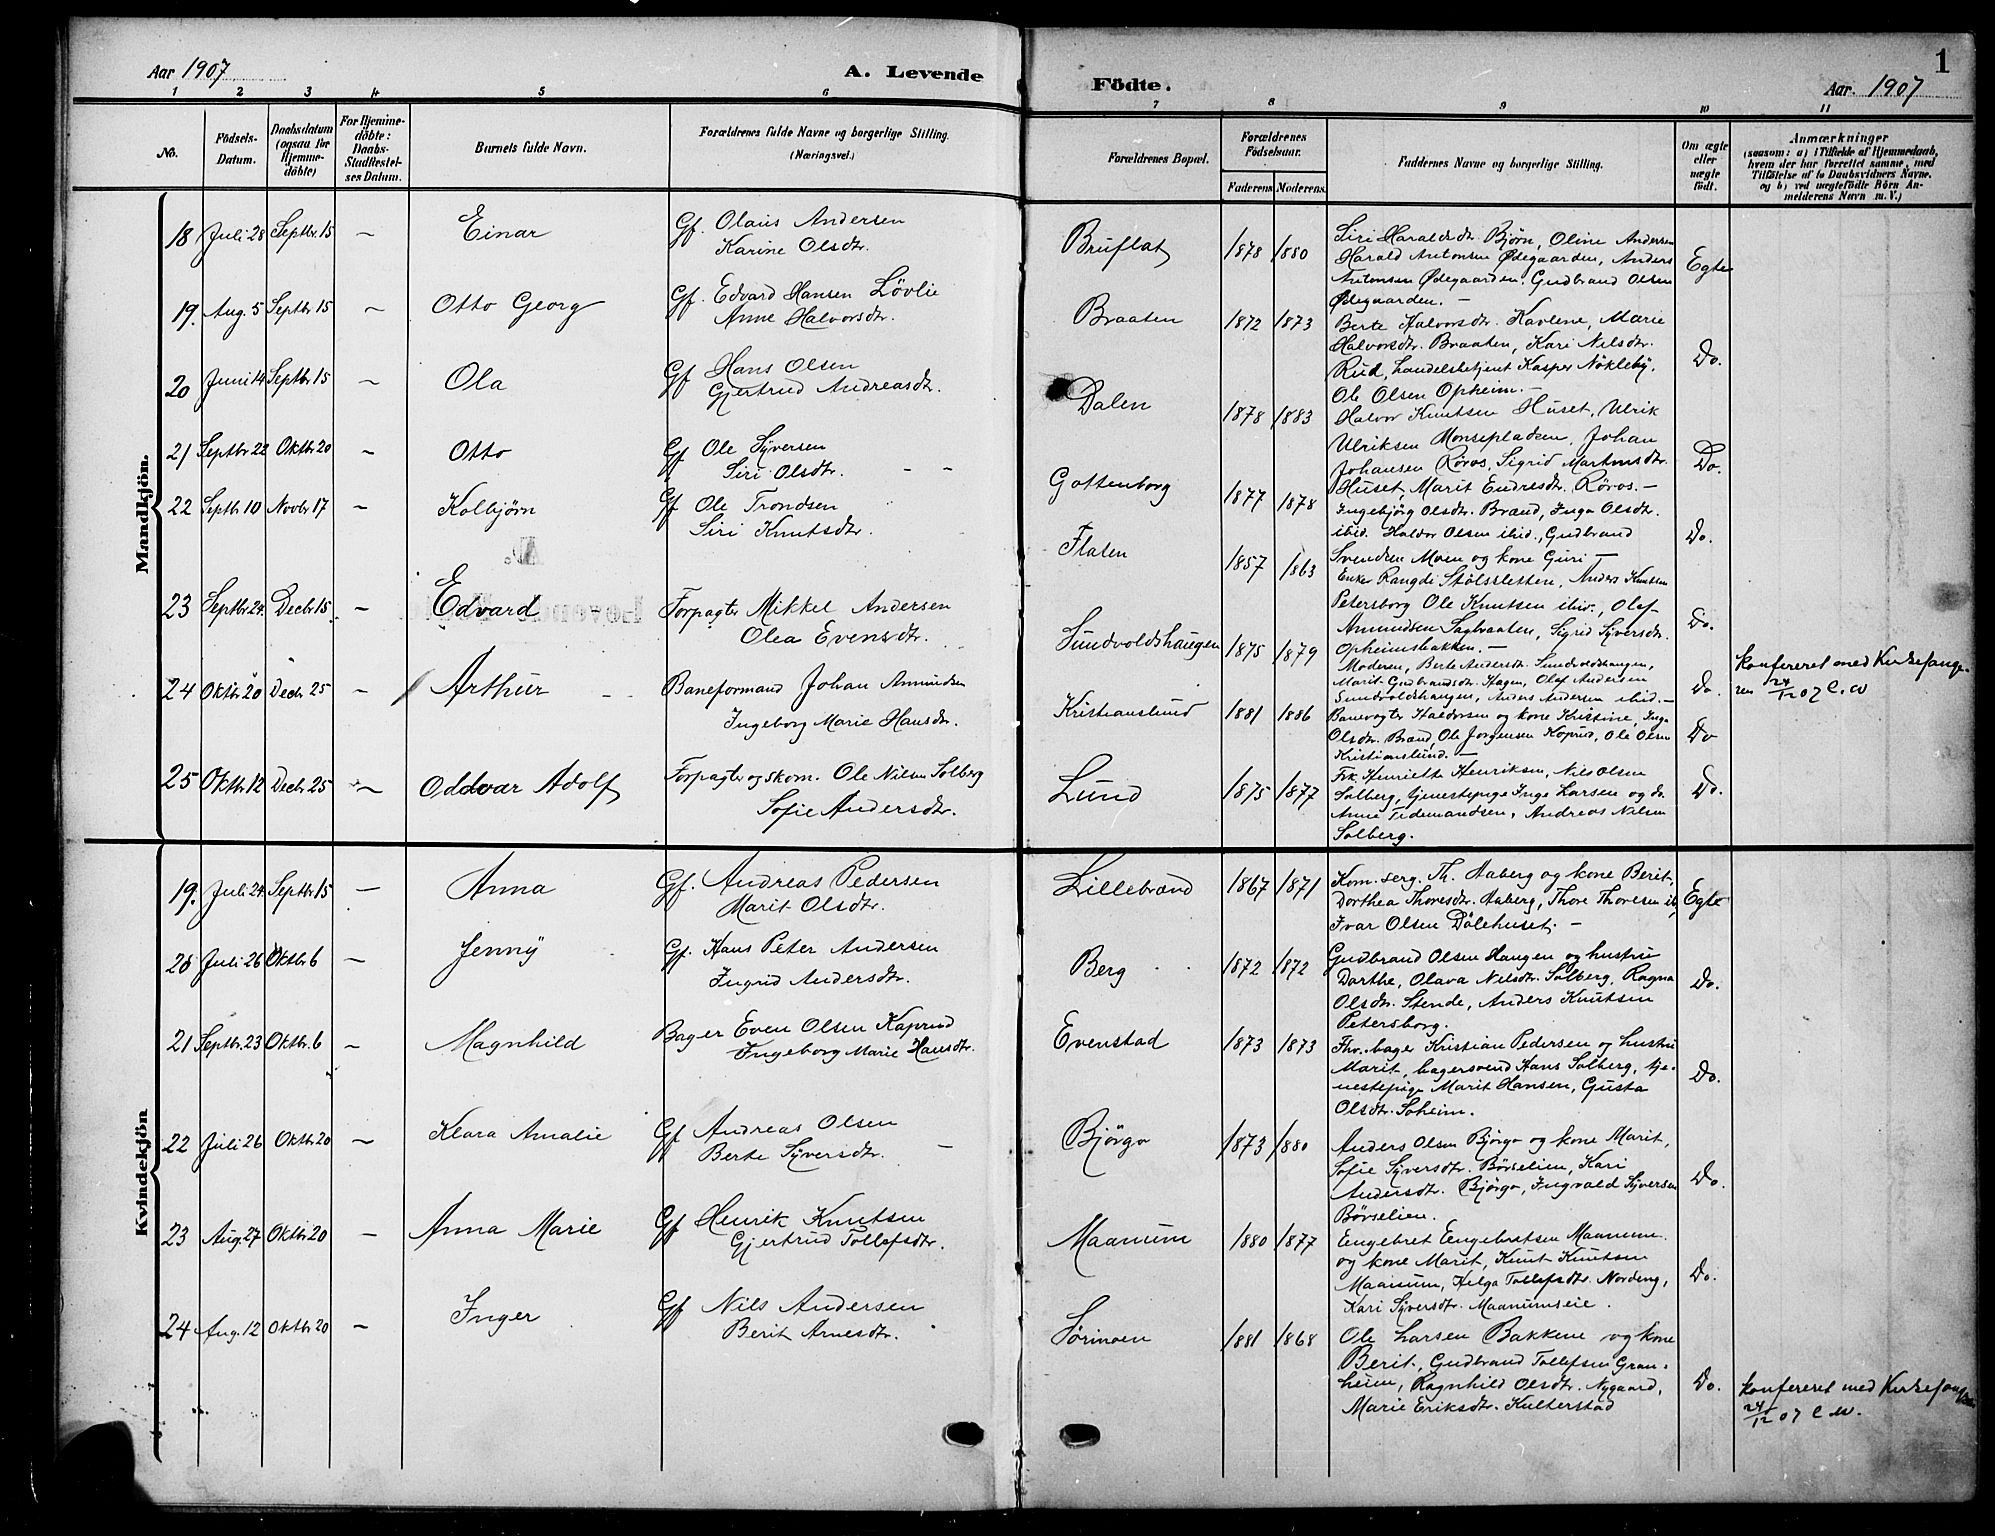 Aar 1907
A. Levende
Födte.
Aar 1907
1
1 2 3 4 5 6 7 8 9 10 11
No.
Födsels-
Datum.
Daabsdatum
(ogsaa for
Hjemme-
döbte)
For Hjemme-
döbte:
Daabs-
Stadfestel-
ses Datum.
Barnets fulde Navn.
Forældrenes fulde Navne og borgerlige Stilling.
(Næringsvei.)
Forældrenes Bopæl.
Forældrenes
Födselsaar.
Faderens Moderens
Faddernes Navne og borgerlige Stilling.
Om ægte
eller
uægte
födt.
Anmærkninger
(saasom: a) i Tilfælde af Hjemmedaab,
hvem der har forrettet samme, med
Tilföielse af to Daabsvidners Navne,
og b) ved uægtefödte Börn An-
melderens Navn m. V.)
Mandkjön.
18 Juli 28 Septbr. 15 – Einar Gf. Olaus Andersen
Karine Olsdtr.
Bruflat 1878 1880 Siri Haraldsdtr. Bjørn, Oline Andersen
Harald Antonsen Ødegaarden, Anders
Antonsen Ødegaarden, Gudbrand Olsen
Ødegaarden. –
Egte
19. Aug. 5 Septbr 15 – Otto Georg Gf. Edvard Hansen Lövlie
Anne Halvorsdtr.
Braaten 1872 1873 Berte Halvorsdtr. Kavlene, Marie
Halvorsdtr. Braaten, Kari Nilsdtr.
Rud, handelsbetjent Kasper Nökleby,
Ole Olsen Opheim. –
Do.
20 Juni 14 Septbr 15 – Ola Gf Hans Olsen
Gjertrud Andreasdtr.
Dalen 1878 1883 Halvor Knutsen Huset, Ulrik
Ulriksen Monsepladsen, Johan
Johansen Röros, Sigrid Martinsdtr.
Huset, Marit Endresdtr. Röros. –
Do.
21 Septbr 22 Oktbr 20 – Otto Gf Ole Syversen
Siri Olsdtr. – –
Gottenborg 1877 1878 Ingebjörg Olsdtr. Brænd, Inga Olsdtr.
ibid. Haldor Olsen ibid., Gudbrand
Svendsen Moen og kone Guri –
Do.
22 Septbr 10 Novbr 17 – Kolbjörn Gf Ole Trondsen
Siri Knutsdtr.
Flaten 1857 1863 Enke Rangdi Stölssletten, Anders Knutsen
Petersborg Ole Knutsen ibid., Olaf
Amundsen Sagbraaten, Sigrid Syversdtr.
Opheimsbakken. –
Do.
23 Septbr 24. Decbr 15 – Edvard Forpagter Mikkel Andersen
Olea Evensdtr.
Sundvoldshaugen 1875 1879 Moderen, Berte Andersdtr. Sundvoldshaugen,
Marit Gudbrandsdtr. Hagen, Olaf Andersen
Sundvoldshaugen, Anders Andersen ibid. –
Do.
konfereret med Kirkesange-
ren 24/12 07 C. W
24 Oktbr 20 Decbr 25 – Arthur Baneformand Johan Amundsen
Ingeborg Marie Hansdtr.
Kristianslund 1881 1886 Banevogter Haldorsen og kone Kristine, Inga
Olsdtr. Brænd, Ole Jörgensen Koprud, Ole Olsen
Kristianslund. –
Do
25 Oktbr. 12 Decbr 25 – Oddvar Adolf Forpagter og skom. Ole Nilsen Solberg
Sofie Andersdtr.
Lund 1875 1877 Frk. Henriette Henriksen, Nils Olsen
Solberg, tjenestepige Inga Larsen og do.
Anne Tidemandsen, Andreas Nilsen
Solberg.
Do.
Kvindekjön
19. Juli 24. Septbr. 15 – Anna Gf. Andreas Pedersen
Marit Olsdtr.
Lillebrænd 1867 1871 Kom. serg. Th. Aaberg og kone Berit,
Dorthea Thoresdtr. Aaberg, Thore Thoresen ib,
Ivar Olsen Dölehuset. –
Egte
20 Juli 26 Oktbr 6 – Jenny Gf. Hans Peter Andersen
Ingrid Andersdtr.
Berg 1872 1872 Gudbrand Olsen Haugen og hustru
Dorthe, Olava Nilsdtr. Solberg, Ragna
Olsdtr. Stende, Anders Knutsen
Petersborg.
Do.
21 Septbr. 23 Oktbr. 6 – Magnhild Bager Even Olsen Kaprud
Ingeborg Marie Hansdtr.
Evenstad 1873 1873 Fhv. bager Kristian Pedersen og hustru
Marit, bagersvend Hans Solberg, tje-
nestepige Marit Hansen, Gusta
Olsdtr. Soheim.
Do.
22 Juli 26 Oktbr 20 – Klara Amalie Gf Andreas Olsen
Berte Syversdtr. –
Bjørgo 1873 1880 Anders Olsen Bjørgo og kone Marit,
Sofie Syversdtr. Börselien, Kari
Andersdtr. Bjørgo, Ingvald Syversen
Börselien.
Do.
23 Aug. 27 Oktbr 20 – Anna Marie Gf Henrik Knutsen
Gjertrud Tollefsdtr.
Maanum 1880 1877 Engebret Engebretsen Maanum
og kone Marit, Knut Knutsen
Maanum, Helga Tollefsdtr. Nordeng,
Kari Syversdtr. Maanumseie.
Do.
24 Aug. 12 Oktbr 20 – Inger Gf Nils Andersen
Berit Arnesdtr.
Sörmoen 1881 1868 Ole Larsen Bakkene og kone
Berit, Gudbrand Tollefsen Gran-
heim, Ragnhild Olsdtr. Nygaard,
Marie Eriksdtr. Kulterstad
Do.
konfereret med Kirkesangeren
24/12 07 C W.